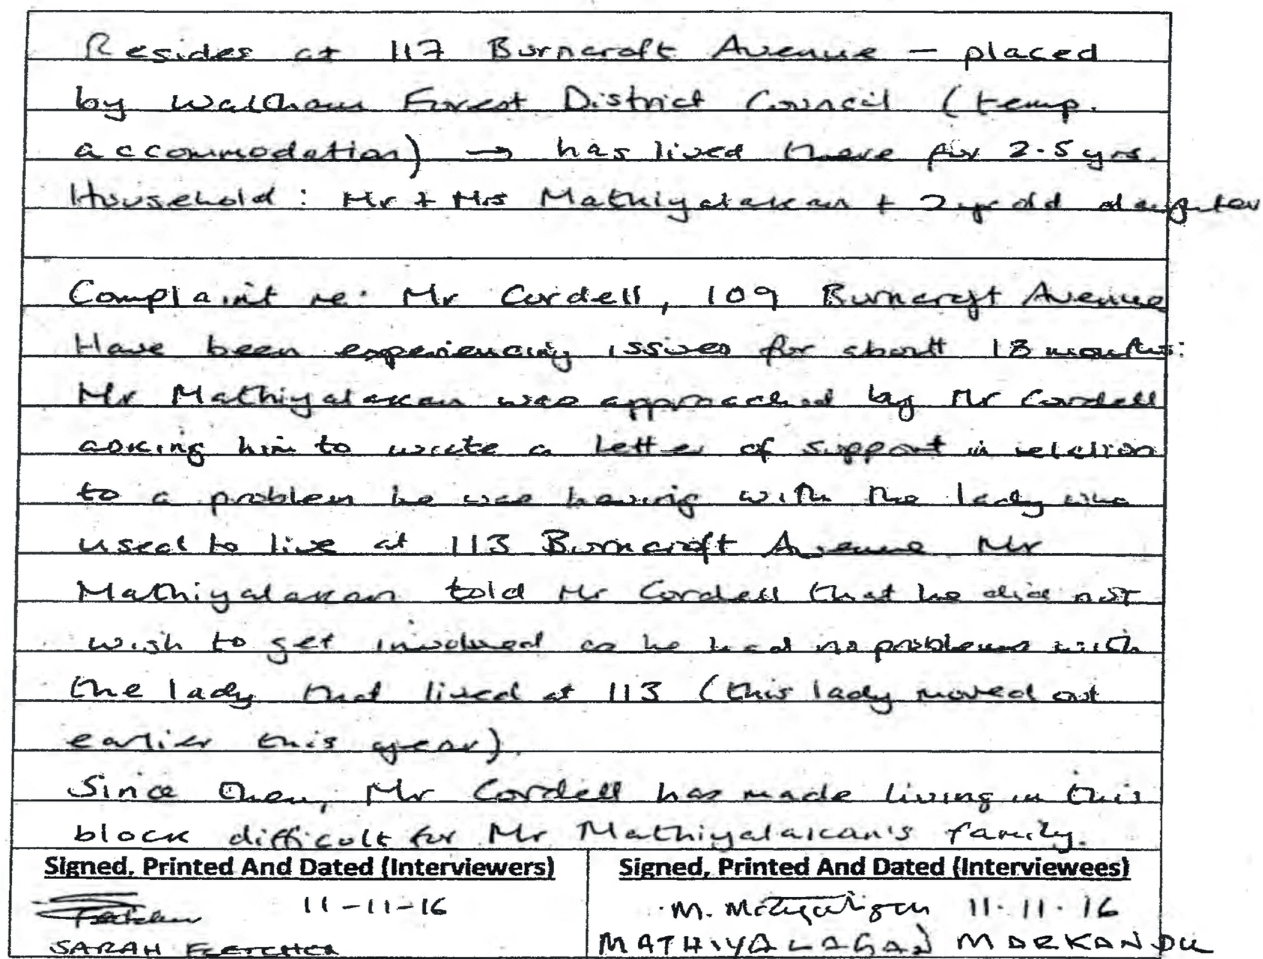 Resides at 117 Burncroft Avenue – placed
by Waltham Forest District Council (temp.
accommodation) → has lived there for 2.5 yrs.
Household: Mr + Mrs Mathiyalakan + 2 yr old daughter
Complaint re: Mr Cordell, 109 Burncroft Avenue
Have been experiencing issues for about 18 months:
Mr Mathiyalakan was approached by Mr Cordell
asking him to write a letter of support in relation
to a problem he was having with the lady who
used to live at 113 Burncroft Avenue. Mr
Mathiyalakan told Mr Cordell that he did not
wish to get involved as he had no problems with
the lady that lived at 113 (this lady moved out
earlier this year).
Since then, Mr Cordell has made living in this
block difficult for Mr Mathiyalakan's family.
Signed, Printed And Dated (Interviewers) Signed, Printed And Dated (Interviewees)
11-11-16 M. 11.11.16
SARAH FLETCHER MATHIYALAGAN MARKANDU